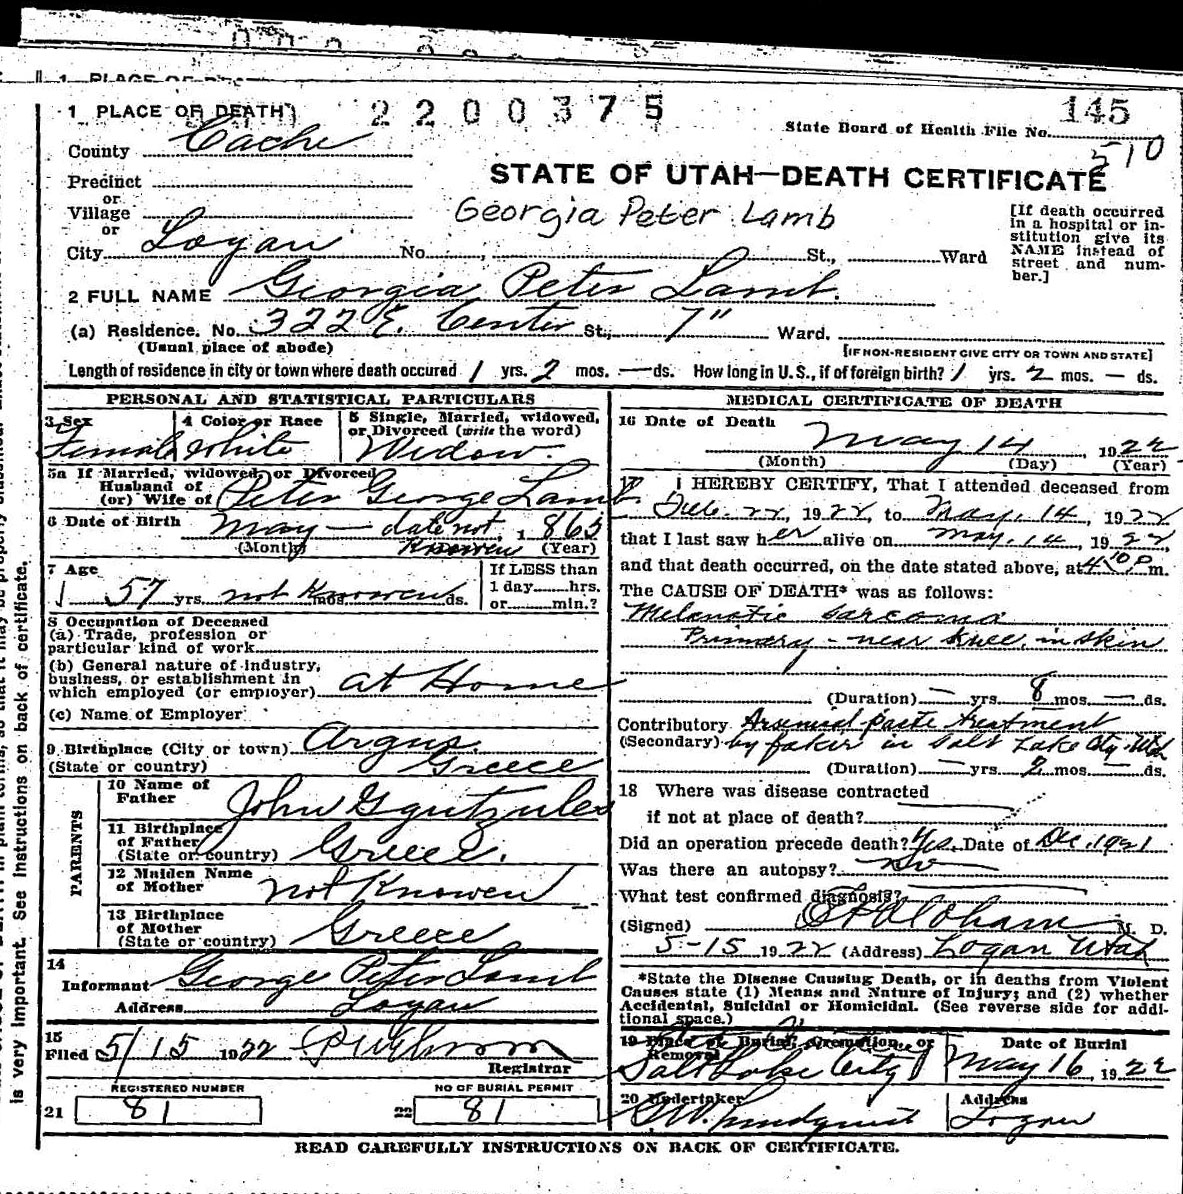 1 PLACE OF DEATH
2200375
145
State Board of Health File No.
510
County Cache
STATE OF UTAH—DEATH CERTIFICATE
Precinct
or
Village
or
Georgia Peter Lamb
[If death occurred
in a hospital or in-
stitution give its
NAME instead of
street and num-
ber.]
City Logan No. St., Ward
2 FULL NAME Georgia Peter Lamb.
(a) Residence. No. 322 E. Center St., 7" Ward.
(Usual place of abode)
[IF NON-RESIDENT GIVE CITY OR TOWN AND STATE]
Length of residence in city or town where death occured 1 yrs. 2 mos. — ds. How long in U.S., if of foreign birth? 1 yrs. 2 mos. — ds.
PERSONAL AND STATISTICAL PARTICULARS
3 Sex
Female
4 Color or Race
White
5 Single, Married, widowed,
or Divorced (write the word)
Widow.
5a If Married, widowed, or Divorced
Husband of
(or) Wife of Peter George Lamb
6 Date of Birth May — date not Knowen 1865
(Month) (Year)
7 Age
57 yrs. not Knowen mos. ds.
If LESS than
1 day hrs.
or min.?
8 Occupation of Deceased
(a) Trade, profession or
particular kind of work
(b) General nature of industry,
business, or establishment in
which employed (or employer) at Home
(c) Name of Employer
9 Birthplace (City or town) Argus.
(State or country) Greece
PARENTS
10 Name of
Father John
11 Birthplace
of Father
(State or country) Greece.
12 Maiden Name
of Mother not Knowen
13 Birthplace
of Mother
(State or country) Greece
14
Informant George Peter Lamb
Address Logan
15
Filed 5/15 1922
Registrar
REGISTERED NUMBER
21 81
NO OF BURIAL PERMIT
22 81
MEDICAL CERTIFICATE OF DEATH
16 Date of Death
May 14, 1922
(Month) (Day) (Year)
17 I HEREBY CERTIFY, That I attended deceased from
22, 1922, to May. 14, 1922
that I last saw her alive on May. 14, 1922
and that death occurred, on the date stated above, at 4 10 P m.
The CAUSE OF DEATH* was as follows:
Melanotic sarcoma
Primary - near knee, in skin
(Duration) — yrs. 8 mos. — ds.
Contributory Arsenical paste treatment
(Secondary) by faker in Salt Lake City, Utah
(Duration) — yrs. 2 mos. — ds.
18 Where was disease contracted
if not at place of death?
Did an operation precede death? Yes. Date of Dec. 1921
Was there an autopsy? No
What test confirmed diagnosis?
(Signed) Oldham M. D.
5-15 1922 (Address) Logan Utah
*State the Disease Causing Death, or in deaths from Violent
Causes state (1) Menns and Nature of Injury; and (2) whether
Accidental, Suicidal or Homicidal. (See reverse side for addi-
tional space.)
19 Place of Burial, Cremation, or
Removal
Salt Lake City
Date of Burial
May 16, 1922
20 Undertaker
Lindquist
Address
Logan
READ CAREFULLY INSTRUCTIONS ON BACK OF CERTIFICATE.
is very important. See instructions on back of certificate.